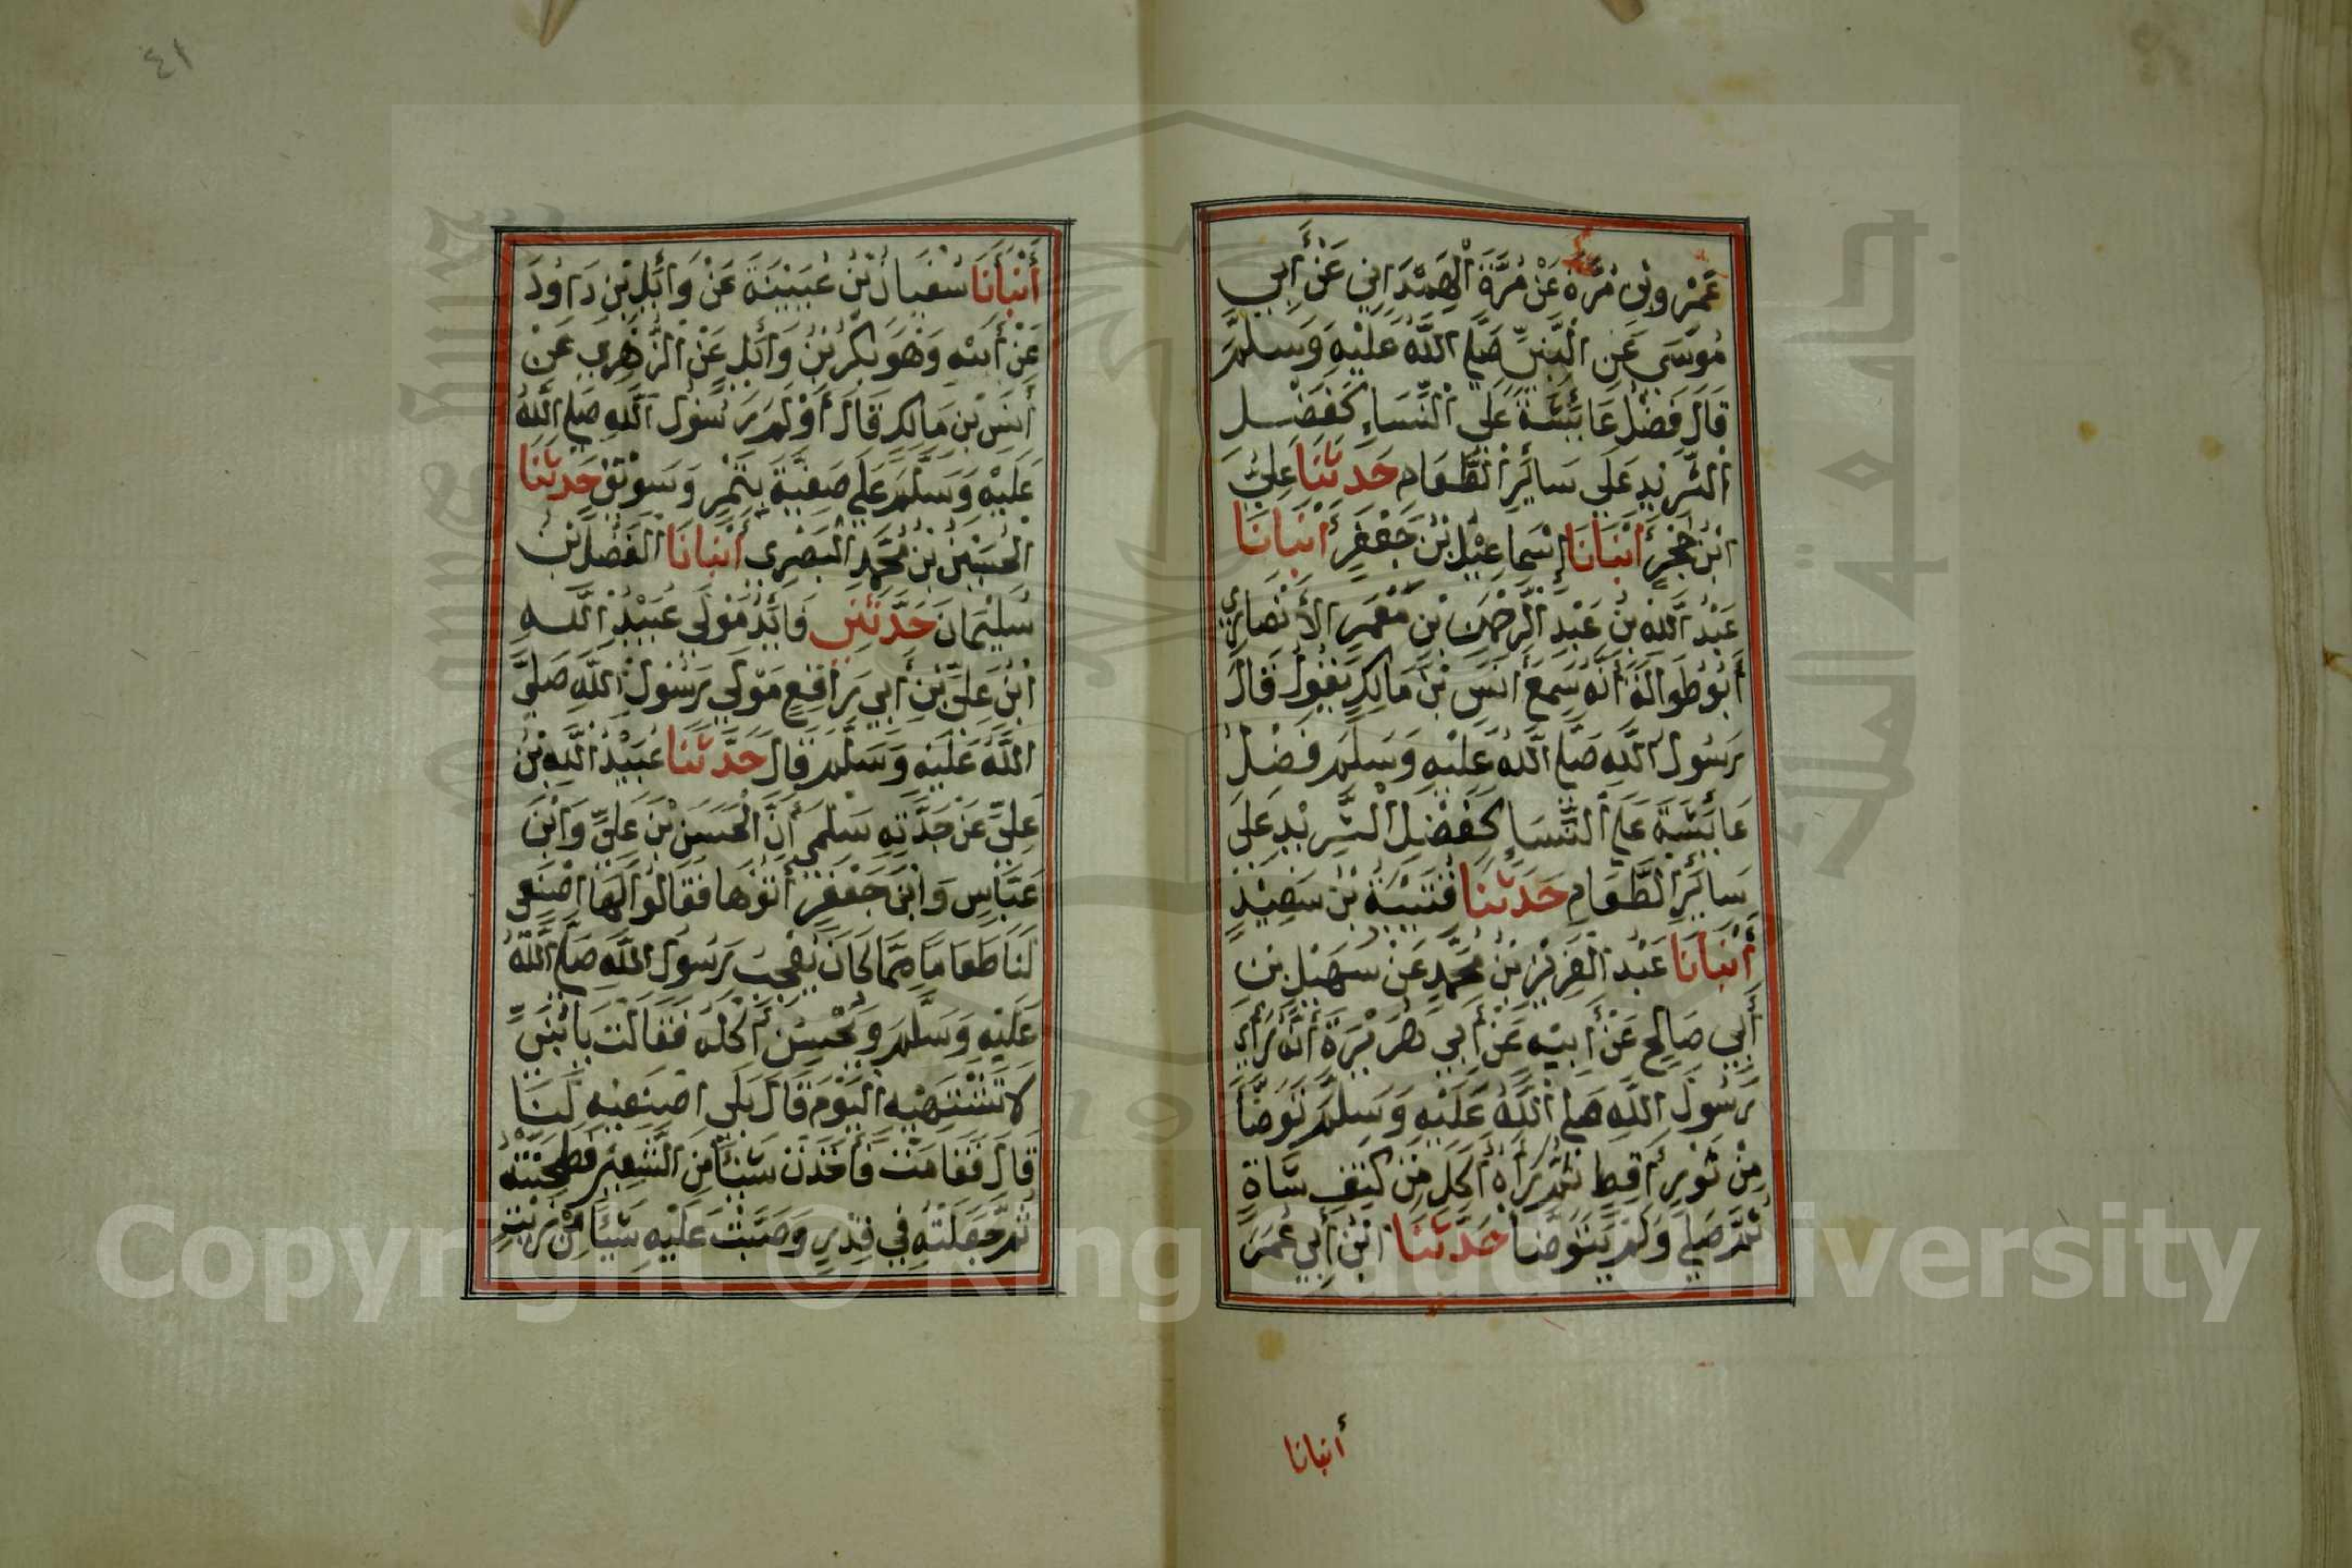 عَمْرِو بْنِ مُرَّةَ عَنْ مُرَّةَ الْهَمْدَانِي عَنْ أَبِي
مُوسَى عَنِ النَّبِيِّ صَلَّى اللَّهُ عَلَيْهِ وَسَلَّمَ
قَالَ فَضْلُ عَائِشَةَ عَلَى النِّسَاءِ كَفَضْلِ
الثَّرِيدِ عَلَى سَائِرِ الطَّعَامِ حَدَّثَنَا عَلِيُّ
ابْنُ حُجْرٍ أَنْبَانَا إِسْمَاعِيلُ بْنُ جَعْفَرٍ أَنْبَانَا
عَبْدُ اللَّهِ بْنُ عَبْدِ الرَّحْمٰنِ بْنِ مَعْمَرٍ الْأَنْصَارِيُّ
أَبُو طَوَالَةَ أَنَّهُ سَمِعَ أَنَسَ بْنَ مَالِكٍ يَقُولُ قَالَ
رَسُولُ اللَّهِ صَلَّى اللَّهُ عَلَيْهِ وَسَلَّمَ فَضْلُ
عَائِشَةَ عَلَى النِّسَاءِ كَفَضْلِ الثَّرِيدِ عَلَى
سَائِرِ الطَّعَامِ حَدَّثَنَا قُتَيْبَةُ بْنُ سَعِيْدٍ
أَنْبَانَا عَبْدُ الْعَزِيْزِ بْنُ مُحَمَّدٍ عَنْ سُهَيْلِ بْنِ
أَبِي صَالِحٍ عَنْ أَبِيْهِ عَنْ أَبِي هُرَيْرَةَ أَنَّهُ رَأَى
رَسُولَ اللَّهِ صَلَّى اللَّهُ عَلَيْهِ وَسَلَّمَ تَوَضَّأَ
مِنْ ثَوْرِ أَقِطٍ ثُمَّ رَآهُ أَكَلَ مِنْ كَتِفِ شَاةٍ
ثُمَّ صَلَّى وَلَمْ يَتَوَضَّا حَدَّثَنَا ابْنُ أَبِي عُمَرَ
أنبانا
٤١
أَنْبَأَنَا سُفْيَانُ بْنُ عُيَيْنَةَ عَنْ وَائِلِ بْنِ دَاوُدَ
عَنْ ابْنِهِ وَهُوَ بَكْرُ بْنُ وَائِلٍ عَنْ الزُّهْرِي عَنْ
أَنَسِ بْنِ مَالِكٍ قَالَ أَوْلَمَ رَسُولُ اللَّهِ صَلَّى اللَّهُ
عَلَيْهِ وَسَلَّمَ عَلَى صَفِيَّةَ بِتَمْرٍ وَسَوِيْقٍ حَدَّثَنَا
الْحُسَيْنُ بْنُ مُحَمَّدٍ الْبَصْرِي أَنْبَانَا الْفَضْلُ بْنُ
سُلَيْمَانَ حَدَّثَنِي فَائِدٌ مَوْلَى عُبَيْدِ اللَّهِ
ابْنِ عَلِيِّ بْنِ أَبِي رَافِعٍ مَوْلَى رَسُولِ اللَّهِ صَلَّى
اللَّهُ عَلَيْهِ وَسَلَّمَ قَالَ حَدَّثَنَا عُبَيْدُ اللَّهِ بْنُ
عَلِيٍّ عَنْ جَدَّتِهِ سَلْمَى أَنَّ الْحَسَنَ بْنَ عَلِيٍّ وَابْنَ
عَبَّاسٍ وَابْنَ جَعْفَرٍ أَتَوْهَا فَقَالُوا لَهَا اصْنَعِي
لَنَا طَعَامًا مِمَّا كَانَ يُعْجِبُ رَسُولَ اللَّهِ صَلَّى اللَّهُ
عَلَيْهِ وَسَلَّمَ وَيُحْسِنُ أَكْلَهُ فَقَالَتْ يَا بُنَيَّ
لَا تَشْتَهِيْهِ الْيَوْمَ قَالَ بَلَى اصْنَعِيْهِ لَنَا
قَالَ فَقَامَتْ فَأَخَذَتْ شَيْئًا مِنَ الشَّعِيْرِ فَطَحَنَتْهُ
ثُمَّ جَعَلَتْهُ فِي قِدْرٍ وَصَبَّتْ عَلَيْهِ شَيْئًا مِنْ زَيْتٍ
Copyright © King Saud University